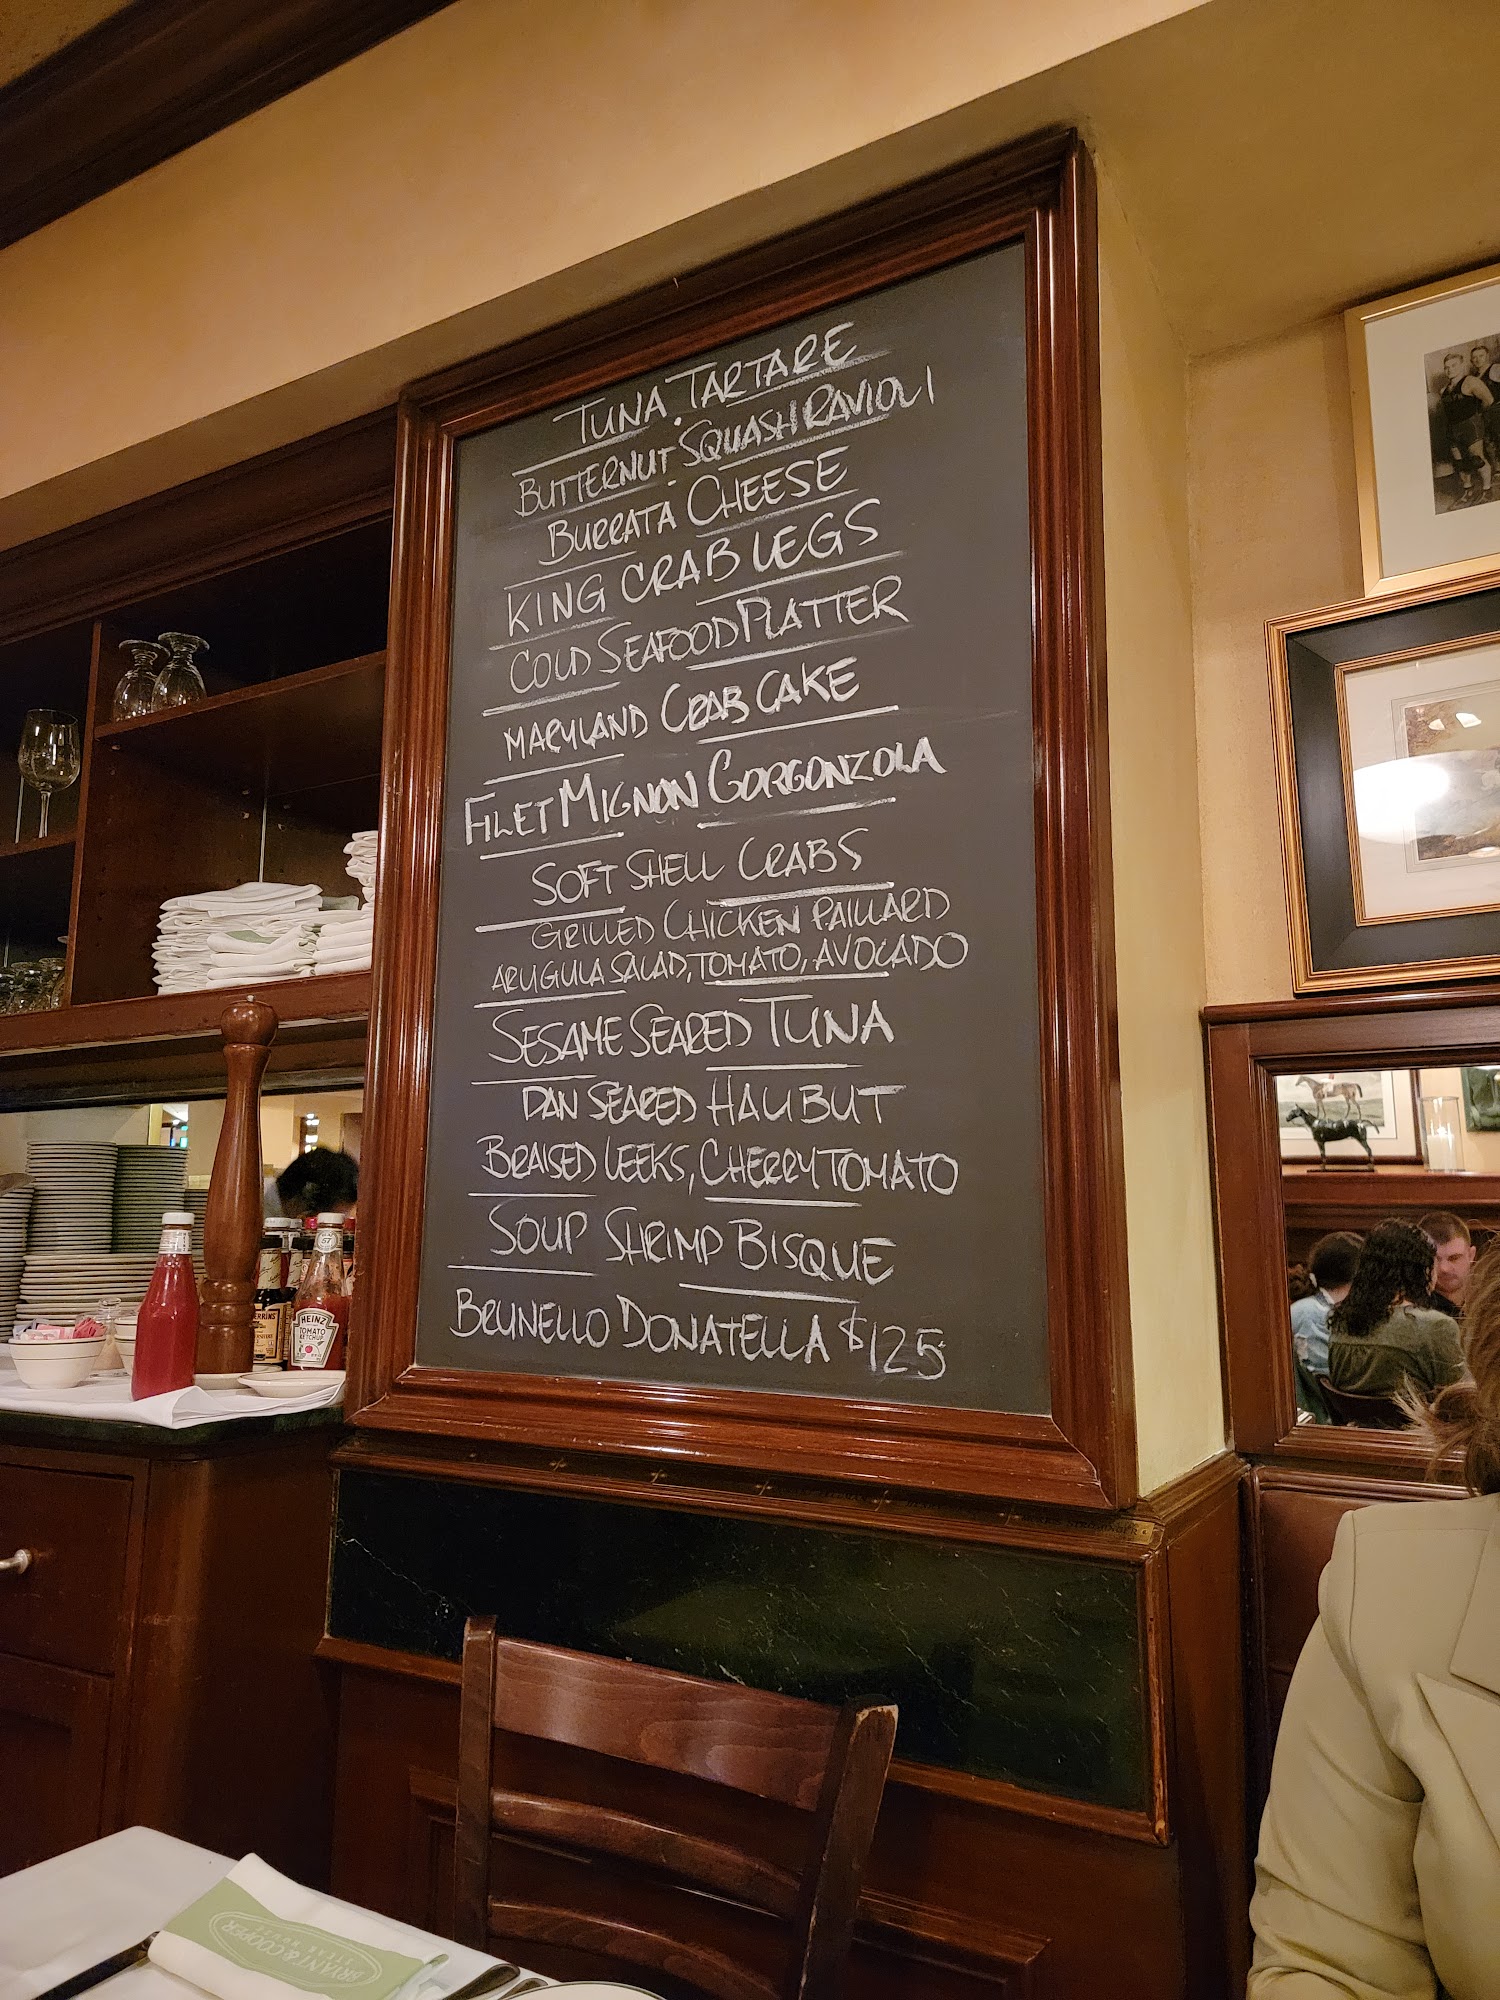 TUNA TARTARE
BUTTERNUT SQUASH RAVIOLI
BURRATA CHEESE
KING CRAB LEGS
COLD SEAFOOD PLATTER
MARYLAND CRAB CAKE
FILET MIGNON GORGONZOLA
SOFT SHELL CRABS
GRILLED CHICKEN PAILLARD
ARUGULA SALAD, TOMATO, AVOCADO
SESAME SEARED TUNA
PAN SEARED HALIBUT
BRAISED LEEKS, CHERRY TOMATO
SOUP SHRIMP BISQUE
BRUNELLO DONATELLA $125
57
HEINZ
TOMATO
KETCHUP
BRYANT & COOPER
STEAK HOUSE